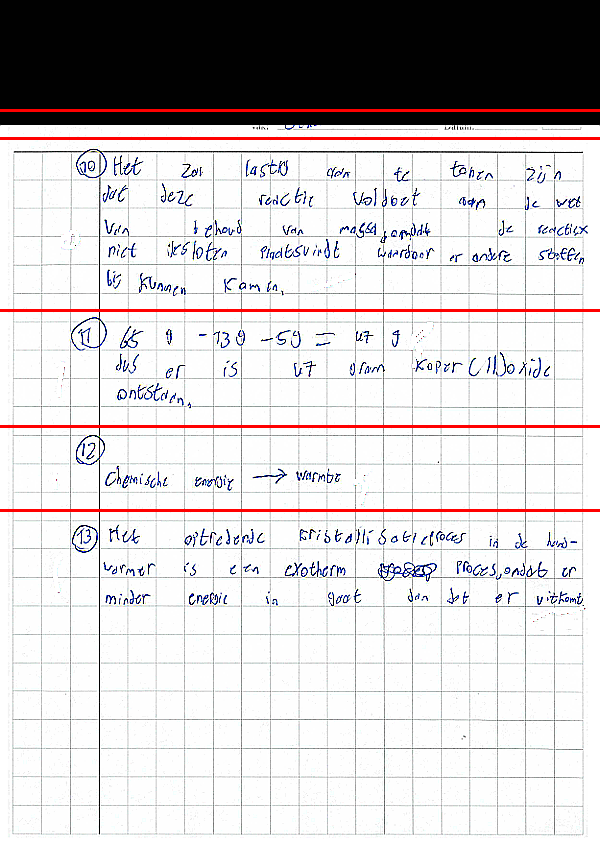 10 Het zal lastig aan te tonen zijn
dat deze reactie voldoet aan de wet
van behoud van massa, omdat de reactie
niet gesloten plaatsvindt waardoor er andere stoffen
bij kunnen komen.
11 65 g - 13 g - 5 g = 47 g
dus er is 47 gram koper(II)oxide
ontstaan.
12
Chemische energie → warmte
13 Het optredende kristallisatieproces in de hand-
warmer is een exotherm proces, omdat er
minder energie in gaat dan dat er uitkomt